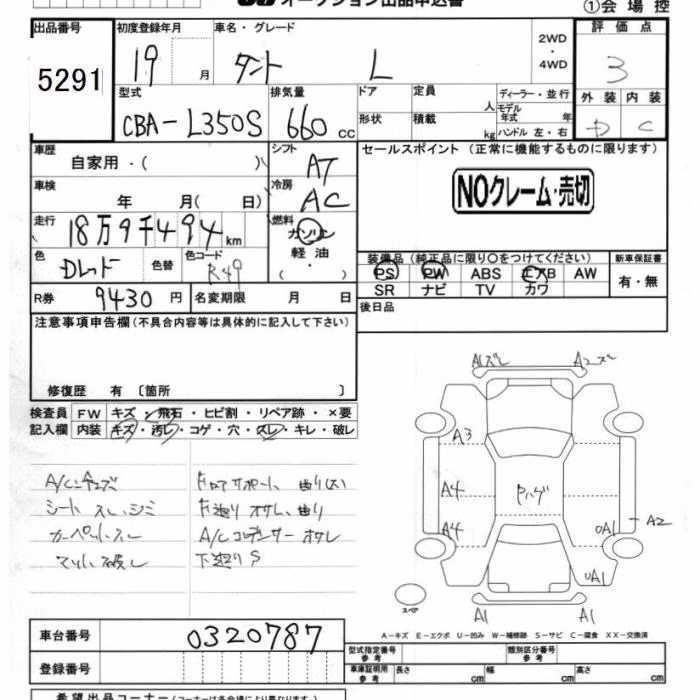 オークション出品申込書
①会場控
出品番号 初度登録年月 車名・グレード 2WD・4WD 評価点
5291 19 月 タント L 3
型式 排気量 ドア 定員 人 ディーラー・並行 外装 内装
CBA-L350S 660 CC 形状 積載 kg モデル年式 年 ハンドル 左・右 D C
車歴 自家用・( ) シフト AT セールスポイント(正常に機能するものに限ります)
車検 年 月( 日) 冷房 AC NOクレーム・売切
走行 18万9千494km 燃料 ガソリン 軽油・( )
色 Dレッド 色替 色コード R49
装備品(純正品に限り○をつけてください) 新車保証書
PS PW ABS エアB AW 有・無
SR ナビ TV カワ
R券 9430円 名変期限 月 日 後日品
注意事項申告欄(不具合内容等は具体的に記入して下さい)
修復歴 有〔箇所 〕
検査員 FW キズ・飛石・ヒビ割・リペア跡・×要
記入欄 内装 キズ・汚レ・コゲ・穴・スレ・キレ・破レ
シート スレ、シミ
カーペットスレ
マット破レ
A/Cコンデンサー
下廻りS
A1ズレ A2ズレ
A3
A4 Rハゲ
A4 A1 A2
A1
スペア
A1 A1
A-キズ E-エクボ U-凹み W-補修跡 S-サビ C-腐食 XX-交換済
車台番号 0320787 型式指定番号 参考 類別区分番号 参考
登録番号 車庫証明用 参考 長さ cm 幅 cm 高さ cm
希望出品コーナー(コーナーは各会場により異なります)